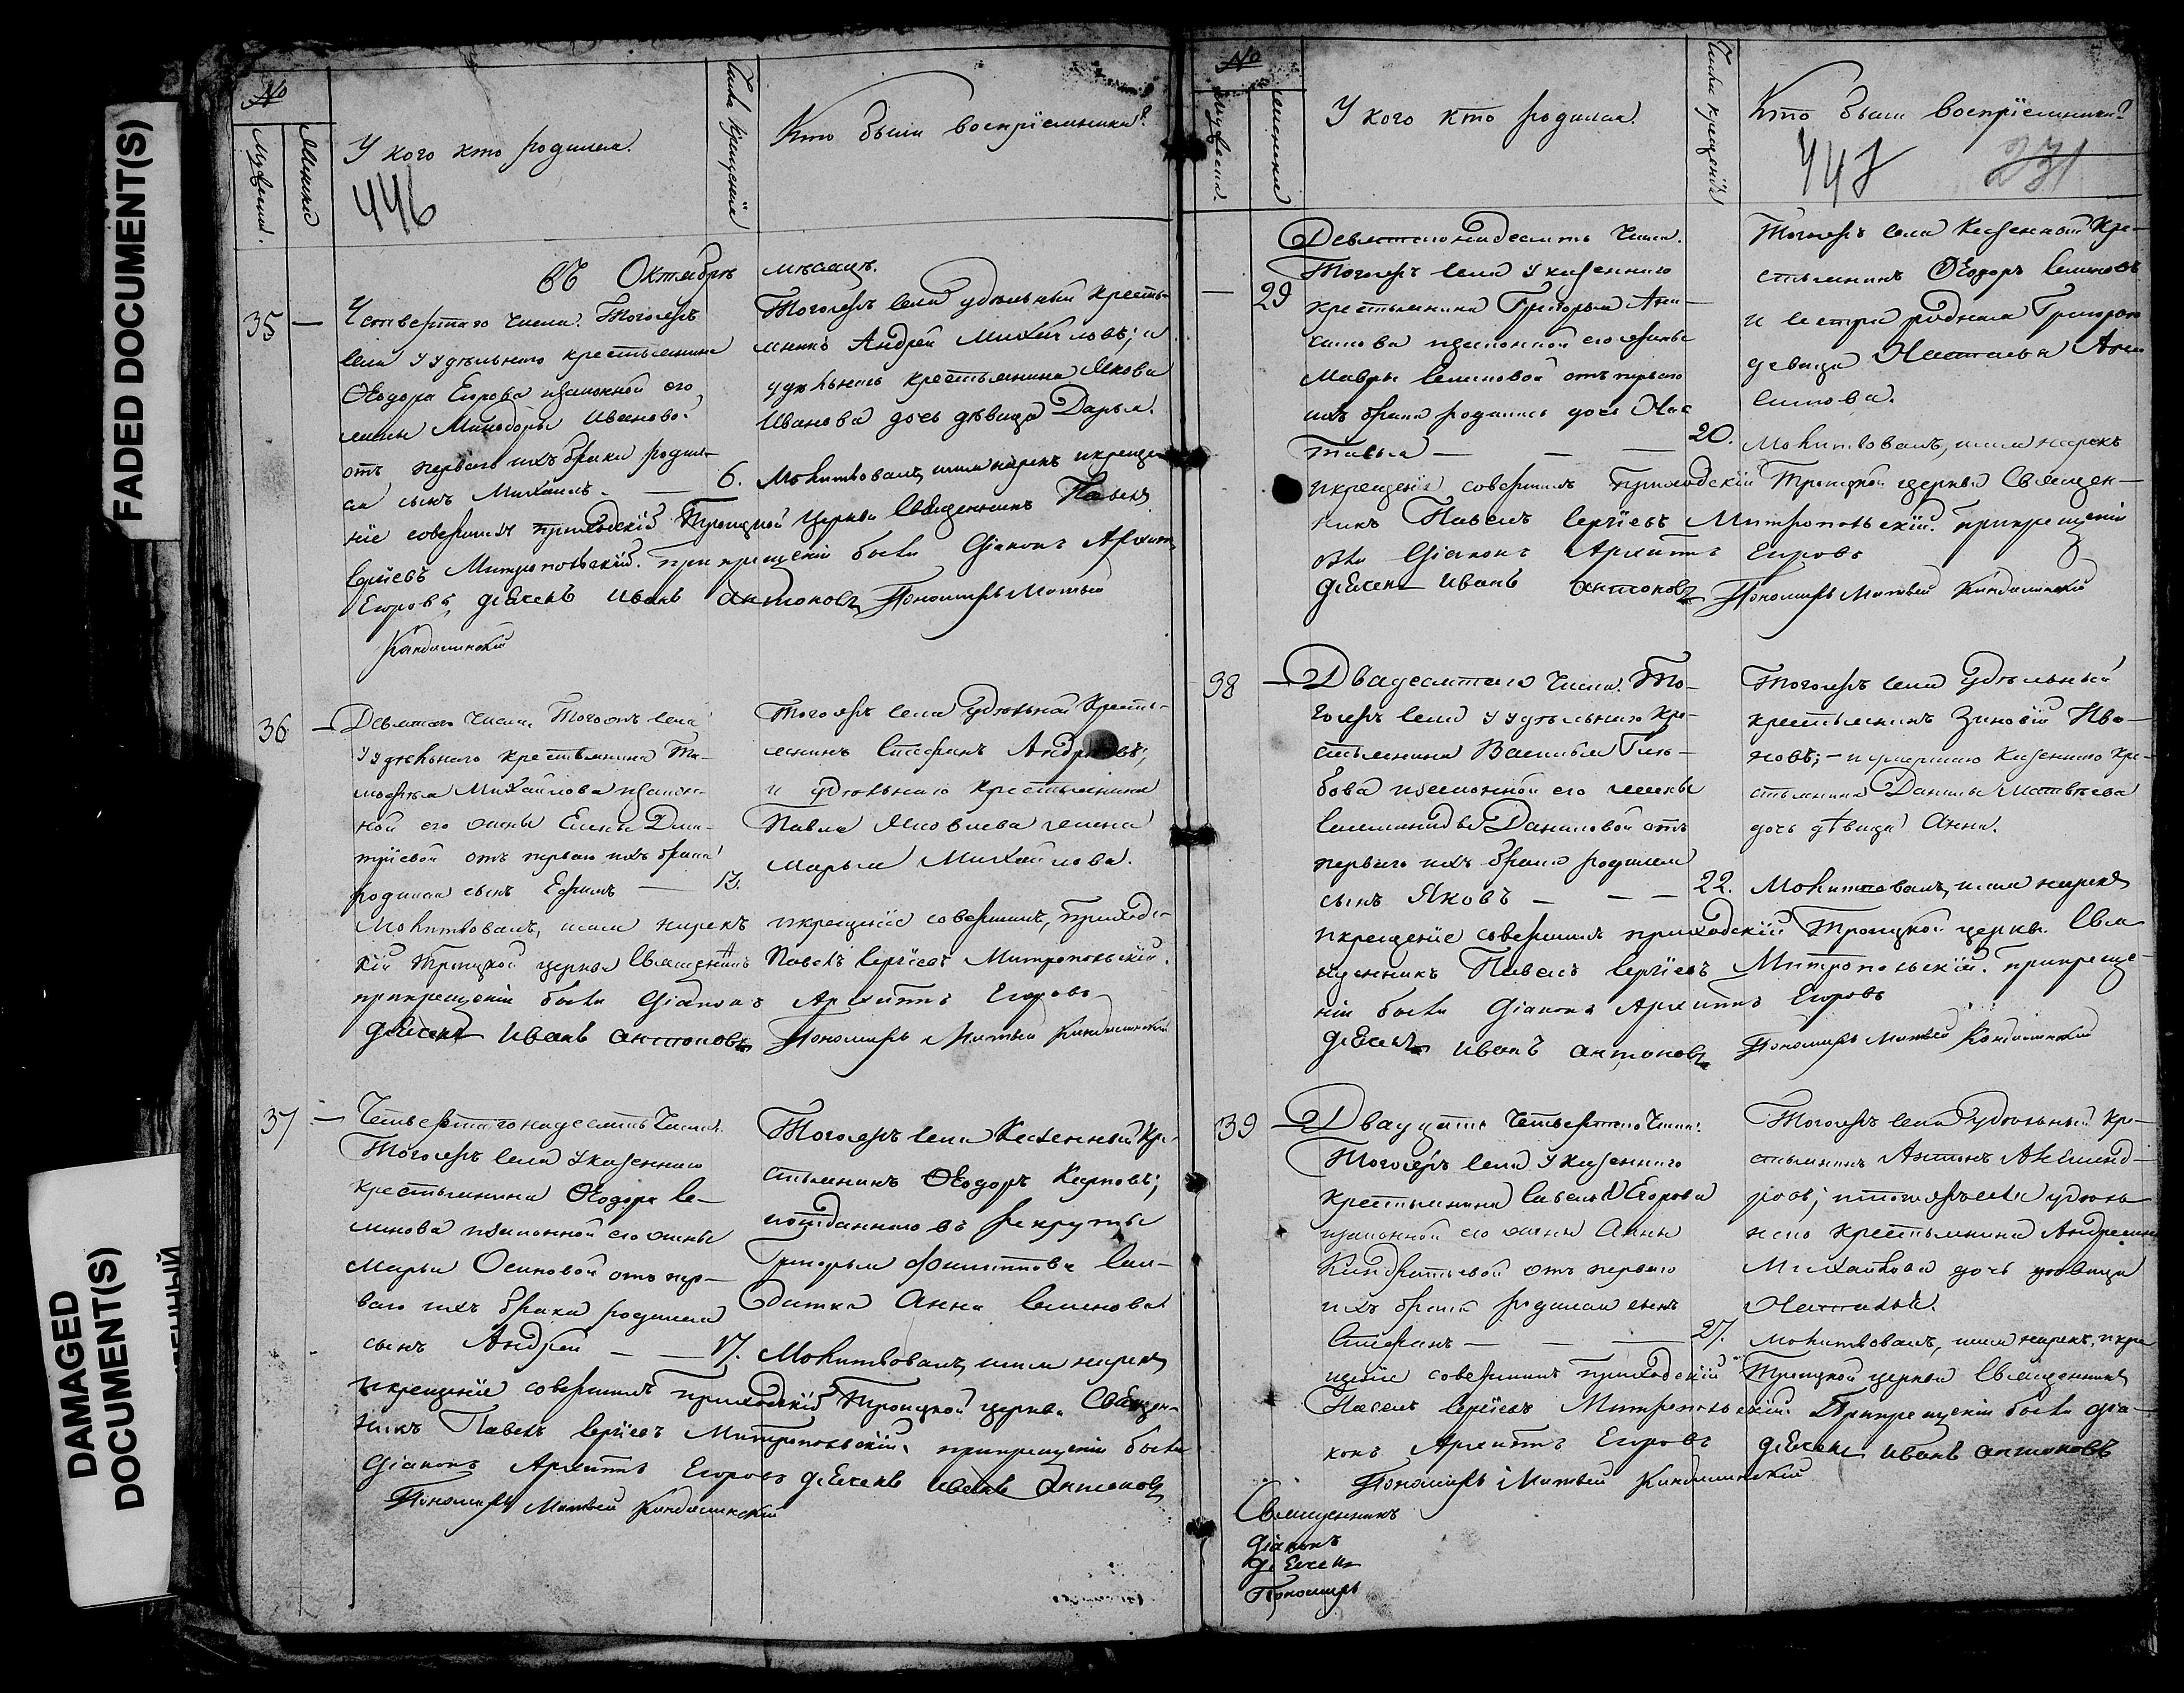 FADED DOCUMENT(S)
DAMAGED
DOCUMENT(S)
№
Мужеска.
Женска
У кого кто родился.
446
Числа крещенія
Кто были воспріемники?
въ Октябрѣ мѣсяцѣ.
35 —
Четвертаго числа. Тогожъ
села у удѣльнаго крестьянина
Ѳеодора Егорова и законной его
жены Минодоры Ивановой
отъ перваго ихъ брака родил-
ся сынъ Михаилъ. — 6.
Тогожъ села удѣльный кресть-
янинъ Андрей Михайловъ; и
удѣльнаго крестьянина Якова
Иванова дочь дѣвица Дарья.
Молитвовалъ, имя нарекъ и креще-
ніе совершилъ приходскій Троицкой Церкви Священникъ Павелъ
Сергіевъ Митропольскій. При крещеніи были Діаконъ Архиппъ
Егоровъ, дьячекъ Иванъ Антоновъ Пономарь Матвей
Кандалинскій
36 —
Девятаго числа. Тогожъ села
У удѣльнаго крестьянина Ти-
мофея Михайлова и закон-
ной его жены Елены Дми-
тріевой отъ перваго ихъ брака
родился сынъ Ефимъ — 13.
Тогожъ села удѣльной кресть-
янинъ Стефанъ Андреевъ;
и удѣльнаго крестьянина
Павла Яковлева жена
Марья Михайлова.
Молитвовалъ, имя нарекъ и крещеніе совершилъ, приходс-
кій Троицкой церкви Священникъ Павелъ Сергіевъ Митропольскій.
при крещеніи были Діаконъ Архиппъ Егоровъ
дьячекъ Иванъ Антоновъ Пономарь Матвей Кандалинскій
37 —
Четвертагонадесять Числа.
Тогожъ села У казеннаго
крестьянина Ѳеодора Се-
менова и законной его жены
Марьи Осиповой отъ пер-
ваго ихъ брака родился
сынъ Андрей — — 17.
Тогожъ села Казенный Кре-
стьянинъ Ѳеодоръ Карповъ;
и отданнаго въ рекруты
Григорья Филиппова сол-
датка Анна Семенова
Молитвовалъ, имя нарекъ
и крещеніе совершилъ приходскій Троицкой церкви Священ-
никъ Павелъ Сергіевъ Митропольскій, при крещеніи были
Діаконъ Архиппъ Егоровъ дьячекъ Иванъ Антоновъ
Пономарь Матвей Кандалинскій
№
мужеска.
женска
У кого кто родился.
Числа крещенія
Кто были воспріемники?
447
231
— 29
Девятагонадесять Числа.
Тогожъ села У казеннаго
крестьянина Григорья Ани-
симова и законной его жены
Мавры Семеновой отъ перваго
ихъ брака родилась дочь Нас
тасья — — — 20.
Тогожъ села Казенный Кре-
стьянинъ Ѳеодоръ Семеновъ
и сестра родная Григорью
девица Настасья Ани
симова.
Молитвовалъ, имя нарекъ
и крещеніе совершилъ приходскій Троицкой церкви Священ-
никъ Павелъ Сергіевъ Митропольскій. При крещеніи
были Діаконъ Архиппъ Егоровъ
дьячекъ Иванъ Антоновъ Пономарь Матвей Кандалинскій
38 —
Двадесятаго Числа. То-
гожъ села У удѣльнаго кре-
стьянина Василья Глѣ-
бова и законной его жены
Соломониды Даниловой отъ
перваго ихъ брака родился
сынъ Яковъ — — — 22.
Тогожъ села Удѣльный
крестьянинъ Зиновій Ива-
новъ; — и умершаго казеннаго кре-
стьянина Данилы Матвѣева
дочь дѣвица Анна.
Молитвовалъ, имя нарекъ
и крещеніе совершилъ приходскій Троицкой церкви Свя
щенникъ Павелъ Сергіевъ Митропольскій. При креще-
ніи были Діаконъ Архиппъ Егоровъ
дьячекъ Иванъ Антоновъ Пономарь Матвей Кандалинскій
39 —
Двадцать Четвертаго Числа.
Тогожъ села У казеннаго
крестьянина Савелья Егорова
и законной его жены Анны
Кандратьевой отъ перваго
ихъ брака родился сынъ
Стефанъ — — — 27.
Тогожъ села удѣльный кре-
стьянинъ Антонъ Александ-
ровъ; и тогожъ села удѣль
наго крестьянина Андреяна
Михайлова дочь девица
Наталья.
Молитвовалъ, имя нарекъ, и кре
щеніе совершилъ приходскій Троицкой церкви Священникъ
Павелъ Сергіевъ Митропольскій. При крещеніи были діа-
конъ Архиппъ Егоровъ дьячекъ Иванъ Антоновъ
Пономарь Матвей Кандалинскій
Священникъ
Діаконъ
дьячекъ
Пономарь